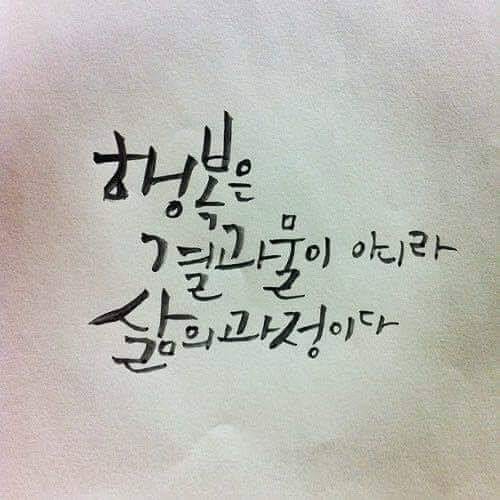 행복은
결과물이 아니라
삶의과정이다